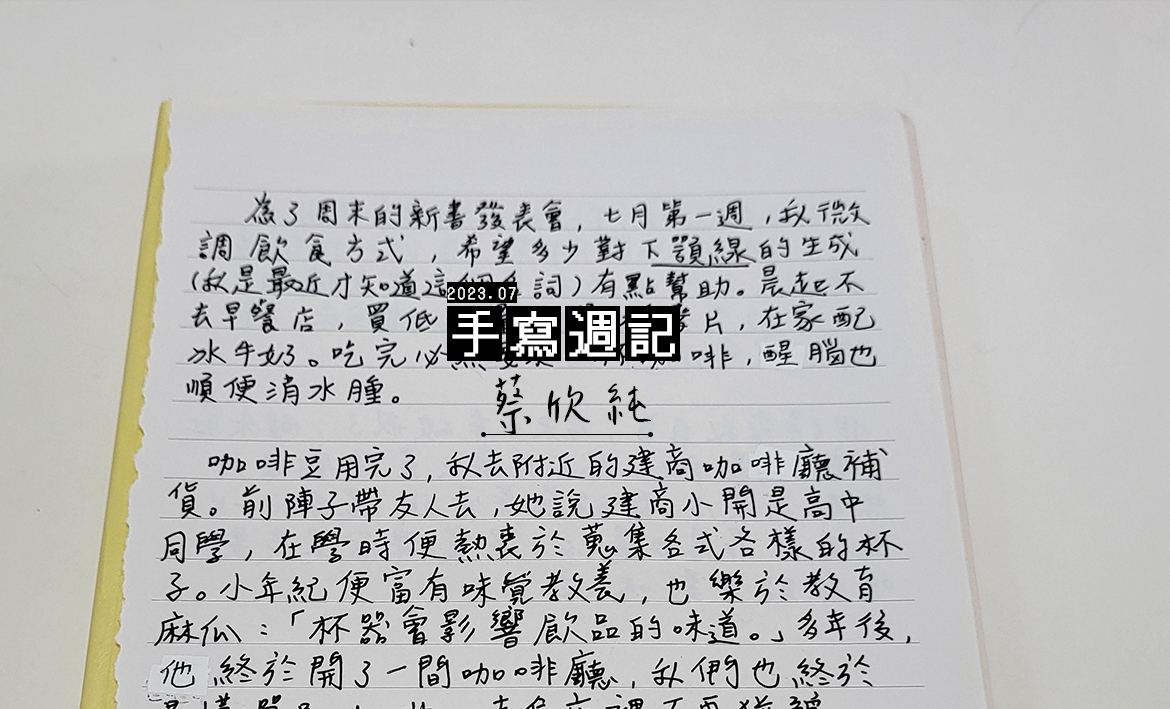 為了周末的新書發表會，七月第一週，我微
調飲食方式，希望多少對下顎線的生成
(我是最近才知道這個名詞)有點幫助。晨起不
2023.07
去早餐店，買低 片，在家配
手寫週記
冰牛奶。吃完必 啡，醒腦也
順便消水腫。
蔡欣純
咖啡豆用完了，我去附近的建商咖啡廳補
貨。前陣子帶友人去，她說建商小開是高中
同學，在學時便熱衷於蒐集各式各樣的杯
子。小年紀便富有味覺教養，也樂於教育
麻瓜：「杯器會影響飲品的味道。」多年後，
他終於開了一間咖啡廳，我們也終於